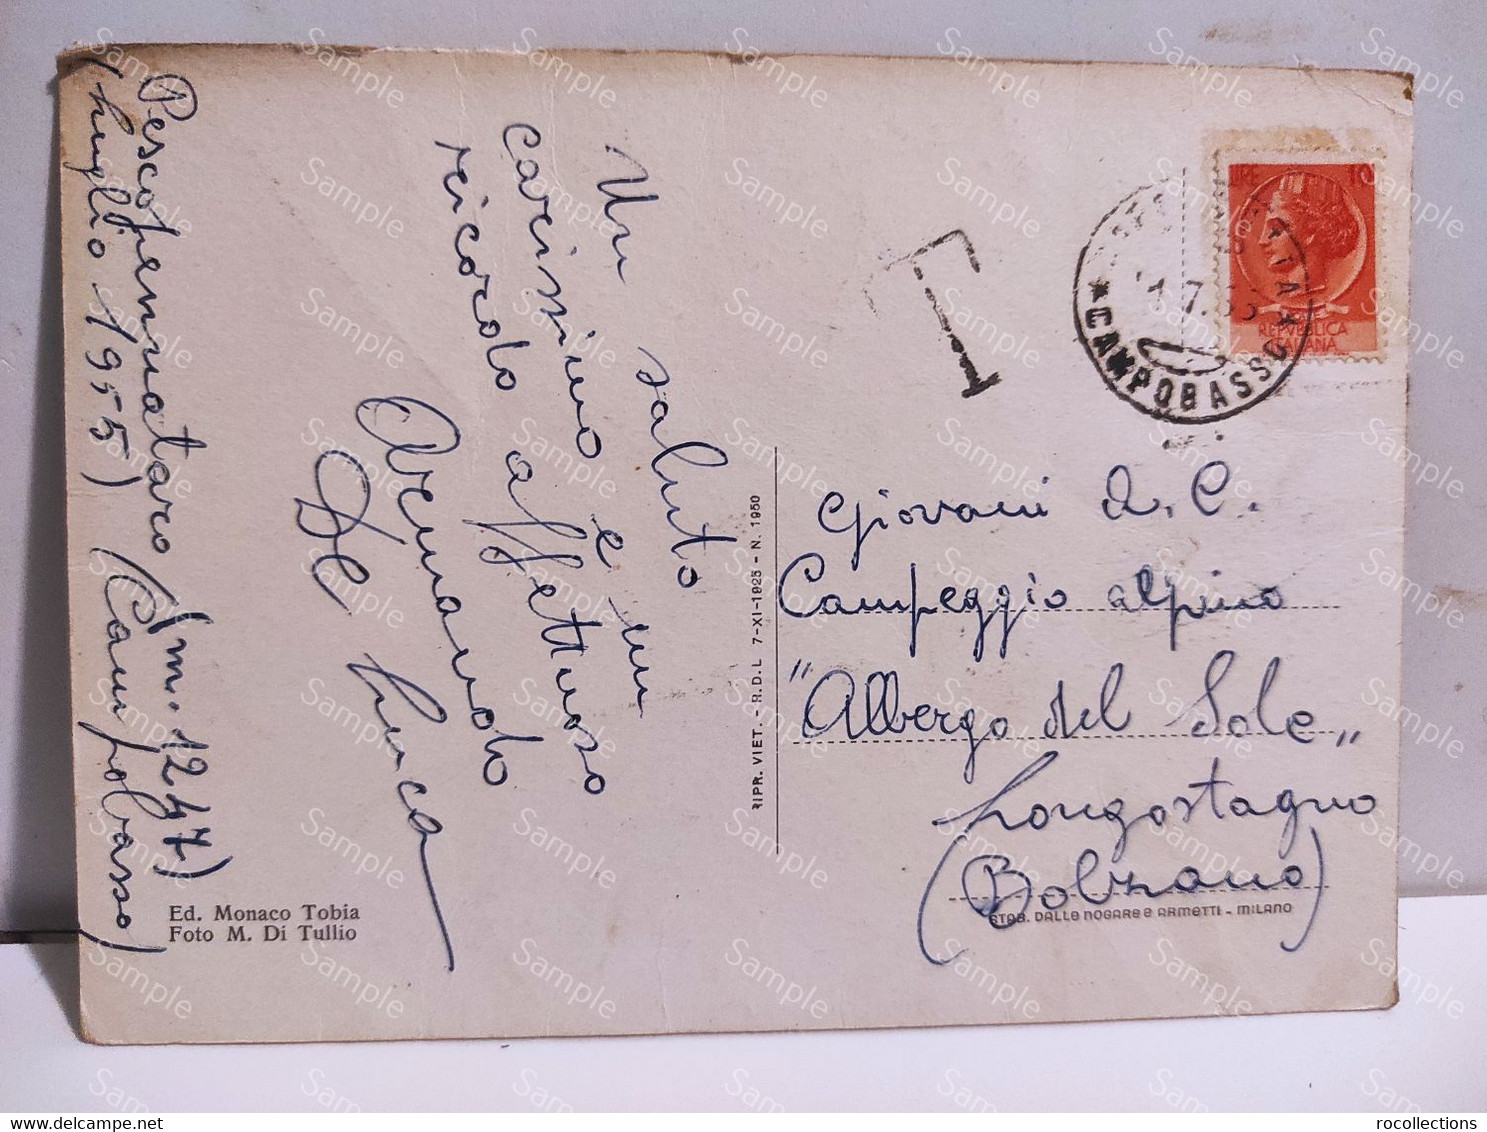 Pescopennataro (m. 1247)
(luglio 1955) (Campobasso)
Un saluto
carissimo e un
ricordo affettuoso
Armando
De Luca
Ed. Monaco Tobia
Foto M. Di Tullio
RIPR. VIET. - R.D.L. 7-XI-1925 - N. 1950
T
LIRE 10
REPVBBLICA
ITALIANA
1.7.55
* CAMPOBASSO *
Giovani A. C.
Campeggio alpino
"Albergo del Sole"
Longostagno
(Bolzano)
STAB. DALLE NOGARE E ARMETTI - MILANO
Sample
rocollections